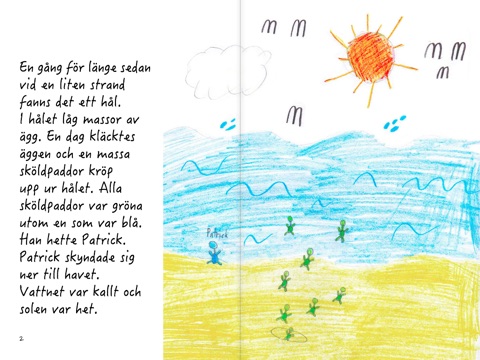 En gång för länge sedan
vid en liten strand
fanns det ett hål.
I hålet låg massor av
ägg. En dag kläcktes
äggen och en massa
sköldpaddor kröp
upp ur hålet. Alla
sköldpaddor var gröna
utom en som var blå.
Han hette Patrick.
Patrick skyndade sig
ner till havet.
Vattnet var kallt och
solen var het.
2
Patrick